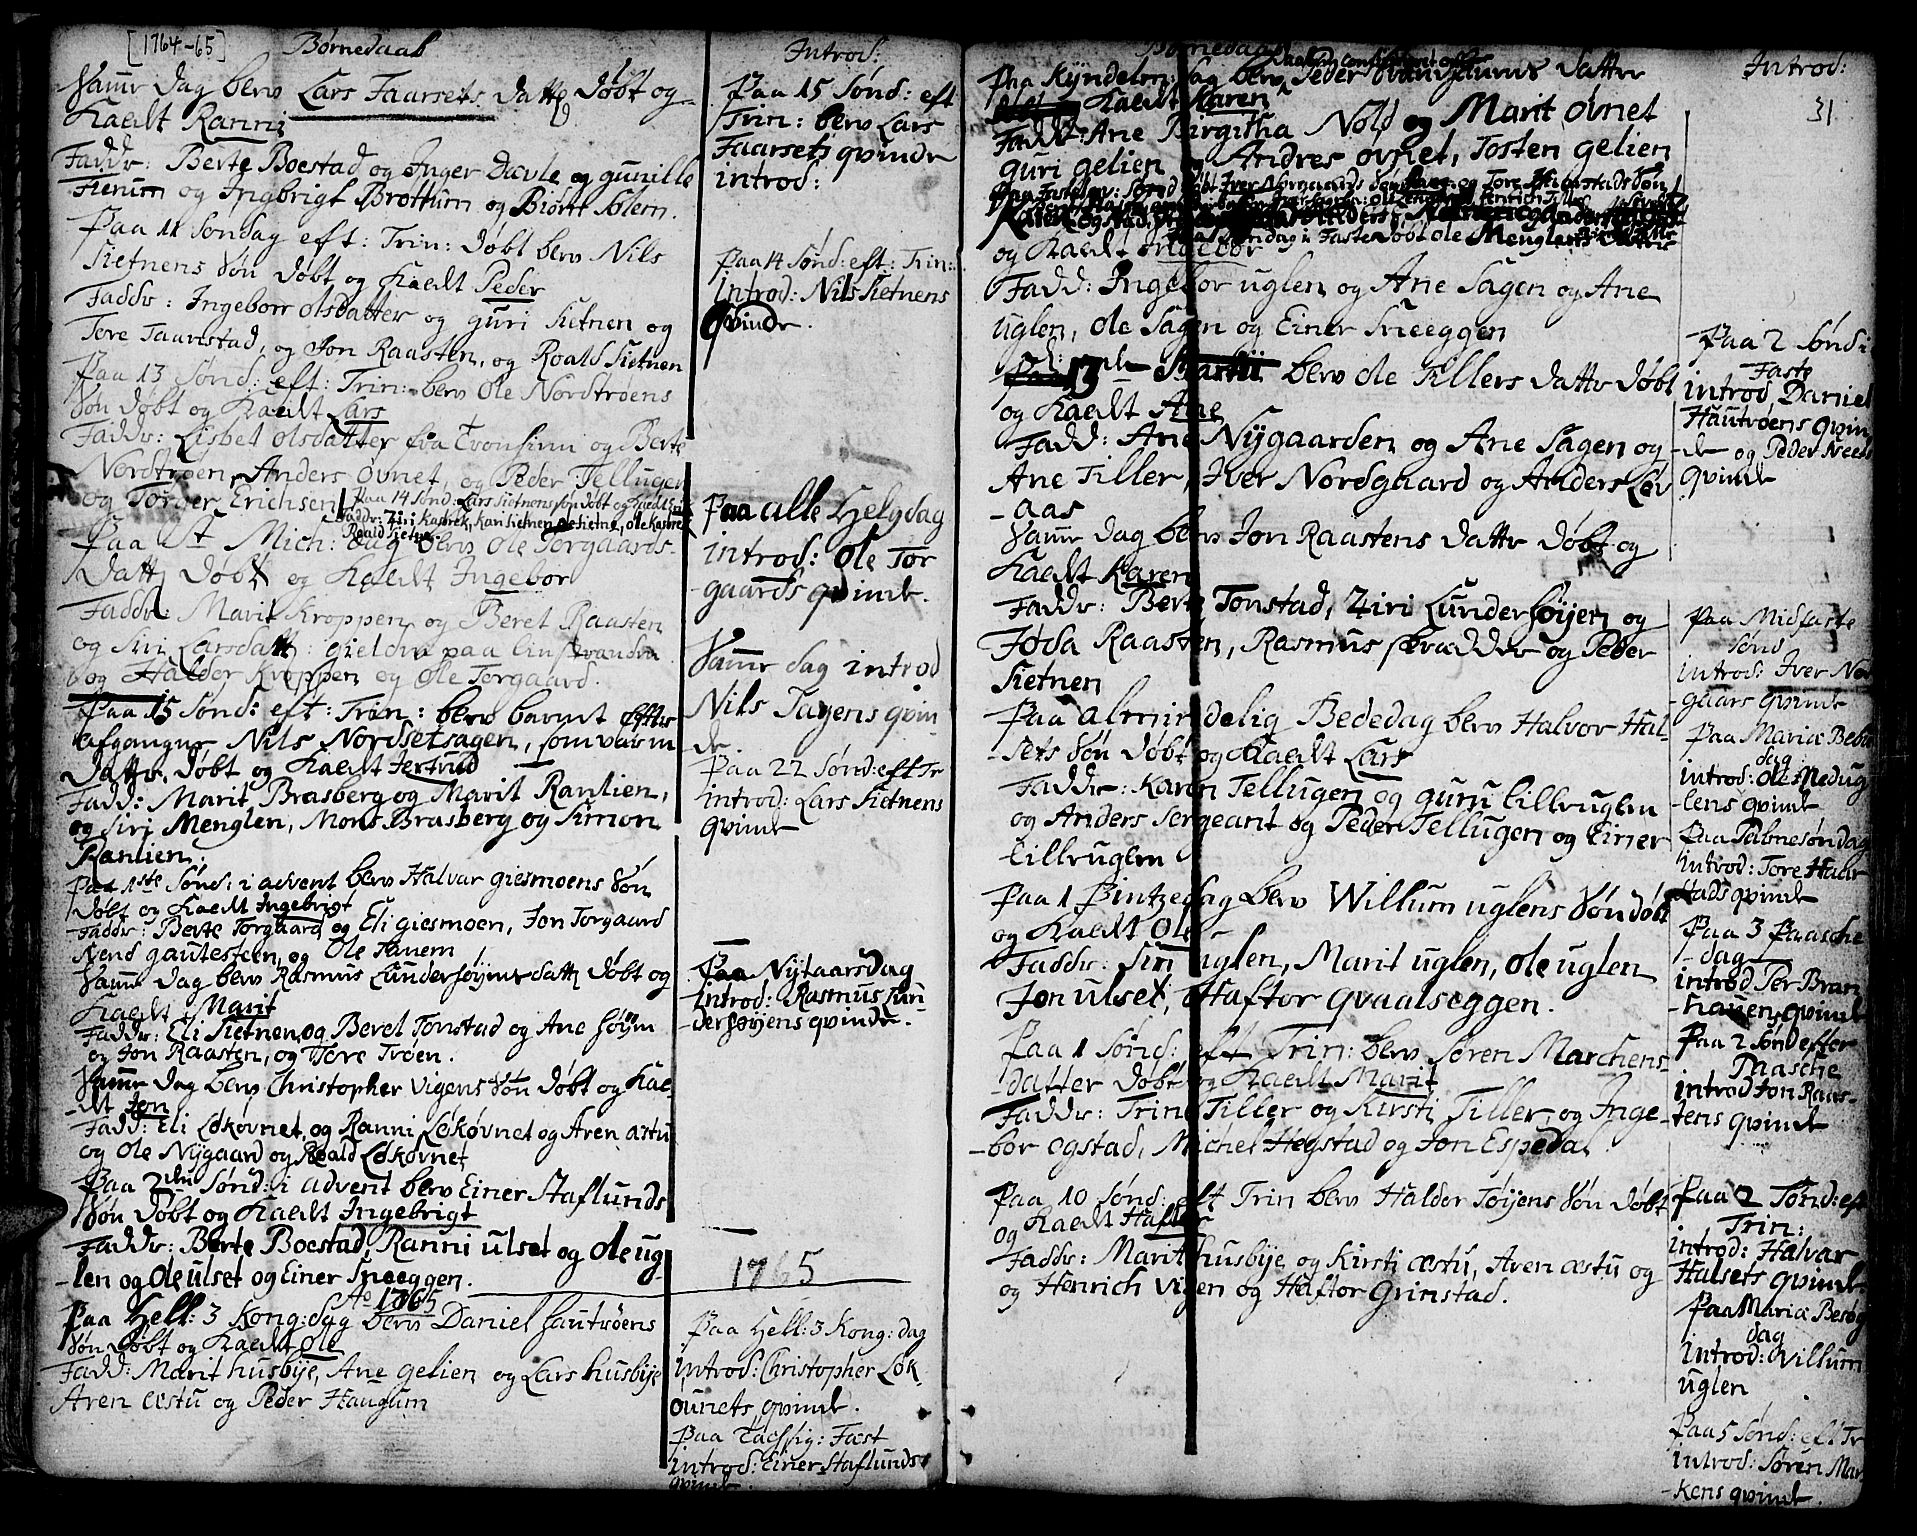 [1764-65]
Børnedaab
Samme dag blev Lars Faarsets datter døbt og
kaldt Ranni
Fadd: Berte Boestad og Inger Davle og gunille
Tierum og Ingbrigt Brottum og Biørn Solem.
Paa 11 Søndag eft: Trin: døbt blev Nils
Sietnens Søn døbt og kaldt Peder
Faddr: Ingeborr olsdatter og guri Sietnen og
Tore Taarnstad, og Jon Raasten, og Roald Sietnen
Paa 13 Sønd: eft: Trin: blev Ole Nordtrøens
Søn døbt og kaldt Lars
Faddr: Lisbet olsdatter fra Tronsinn og Berte
Nordtrøen, Anders øvnet, og Peder Tellugen
og Torger Erichsen
Paa 14 Sønd: Lars Sietnens søn døbt og kaldt
Faddr: Ziri Kasrek, Kari Sietnen, Ole Sietne, ole Kasrek
Roald Sietne
Paa St Mich: dag blev Ole Torgaards
Datt døbt og kaldt Ingebor
Faddr: Marit Kroppen og Beret Raasten
og Siri Larsdatt: paa
og Haldor Kroppen og Ole Torgaard.
Paa 15 Sønd: eft: Trin: blev barnet efter
afgangne Nils Nordsetsagen, som var en
Datter, døbt og kaldt Jertrud
Fadd: Marit Brasberg og Marit Ranlien,
og Siri Menglen, Mons Brasberg og Simon
Ranlien.
Paa 1ste Sønd: i advent blev Halvar giesmoens Søn
Døbt og kaldt Ingebrigt
Faddr: Berte Torgaard og Eli giesmoen, Jon Torgaard
Svend gautesteen og Ole Tanem
Samme Dag blev Rasmus Lundersøiens datt døbt og
kaldt Marit
Faddr: Eli Sietnen og Beret Tonstad og Ane søim
og Jon Raasten, og Tore Trøen.
Samme Dag blev Christopher Vigens Søn døbt og kal-
-dt Jon
Fadd: Eli Løkøvnet, og Ranni Løkøvnet og Aren æstu
og Ole Nygaard og Roald Løkøvnet
Paa 2den Sønd: i advent blev Einer Staflunds
Søn Døbt og kaldt Ingebrigt
Faddr: Berte Boestad, Ranni ulset og Ole ug-
-len og Ole ulset og Einer Sneeggen.
Ao 1765
Paa Hell: 3 Kong: dag blev Daniel Hautrøens
Søn Døbt og kaldt Ole
Fadd: Marit husbye, Ane gelien og Lars husbye
Aren æstu og Peder Haugum
Introd:
Paa 15 Sønd: eft
Trin: blev Lars
Faarsets qvinde
introd:
Paa 14 Sønd: eft: Trin:
Introd: Nils Sietnens
Qvinde.
Paa alle Helgdag
introd: Ole Tor
-gaards qvinde.
Samme dag introd
Nils Sagens qvin
-de.
Paa 22 Sønd: eft Tr
introd: Lars Sietnens
qvinde
Paa Nytaarsdag
Introd: Rasmus Lun
-dersøyens qvinde.
1765
Paa Hell: 3 Kong: dag
introd: Christopher Løk
ovnets qvinde.
Paa Fast
introd: Einer Staflunds
qvinde.
Børnedaab
Paa Kyndelm: dag blev Peder datter
kaldt Karen
Faddr: Ane Birgitha Nold og Marit øvnet
guri gelien og Andres øvnet, Tosten gelien
Søndag i Faste døbt ole Menglens datter
og kaldt Ingebor
Fadd: Ingebor uglen og Ane Sagen og Ane
uglen, Ole Sagen og Einer Sneeggen
13 blev Ole Tillers datter døbt
og kaldt Ane
Fadd: Ane Nygaarden og Ane Sagen og
Ane Tiller, Iver Nordgaard og Anders Løv
-aas
Samme dag blev Jon Raastens datter døbt og
kaldt Karen
Faddr: Berte Tonstad, Ziri Lundersøijen og
Jøda Raasten, Rasmus skrædder og Peder
Sietnen
Paa almindelig Bededag blev Halvor Hal-
-sets Søn døbt og kaldt Lars
Faddr: Karen Tellugen og guru Lilleuglen
og Anders Sergeant og Peder Tellugen og Einer
Lilleuglen
Paa 1 Pintzedag blev Willum uglens Søn døbt
og kaldt Ole
Faddr: Siri uglen, Marit uglen, ole uglen
Jon ulset, Haftor qvaalseggen.
Paa 1 Sønd: eft Trin: blev Søren Marchens
-datter døbt og kaldt Marit
Faddr: Trine Tiller og Kirsti Tiller, og Inge-
-bor ogstad, Michel Hegstad og Jon Espedal
Paa 10 Sønd: eft Trin blev Haldor Tøyens Søn døbt
og kaldt Haftor
Faddr: Marit husbye og Kirsti æstu, Aren æstu og
og Henrich Vigen og Haftor Grinstad.
Introd:
31
Paa 2 Sønd i
Faste
introd Daniel
Hautrøens qvin
-de og Peder
qvinde
Paa Midfaste
sønd
introd: Iver No
gaars qvinde
Paa Mariæ Beb
dag
introd: Ole Medug
-lens qvinde
Paa Palmesøndag
introd: Tore Haar
stads qvinde
Paa 3 Paasche
-dag
introd Per Bran
-hauen qvinde
Paa 2 Sønd efter
Paasche
introd Jon Raas-
-tens qvinde
Paa 2 Sønd: eft
Trin:
introd: Halvar
Halsets qvinde
Paa Mariæ Besøg
dag
introd: Villum
uglen
Paa 5 Sønd: eft Tr
introd: Søren Mar
-kens qvinde.